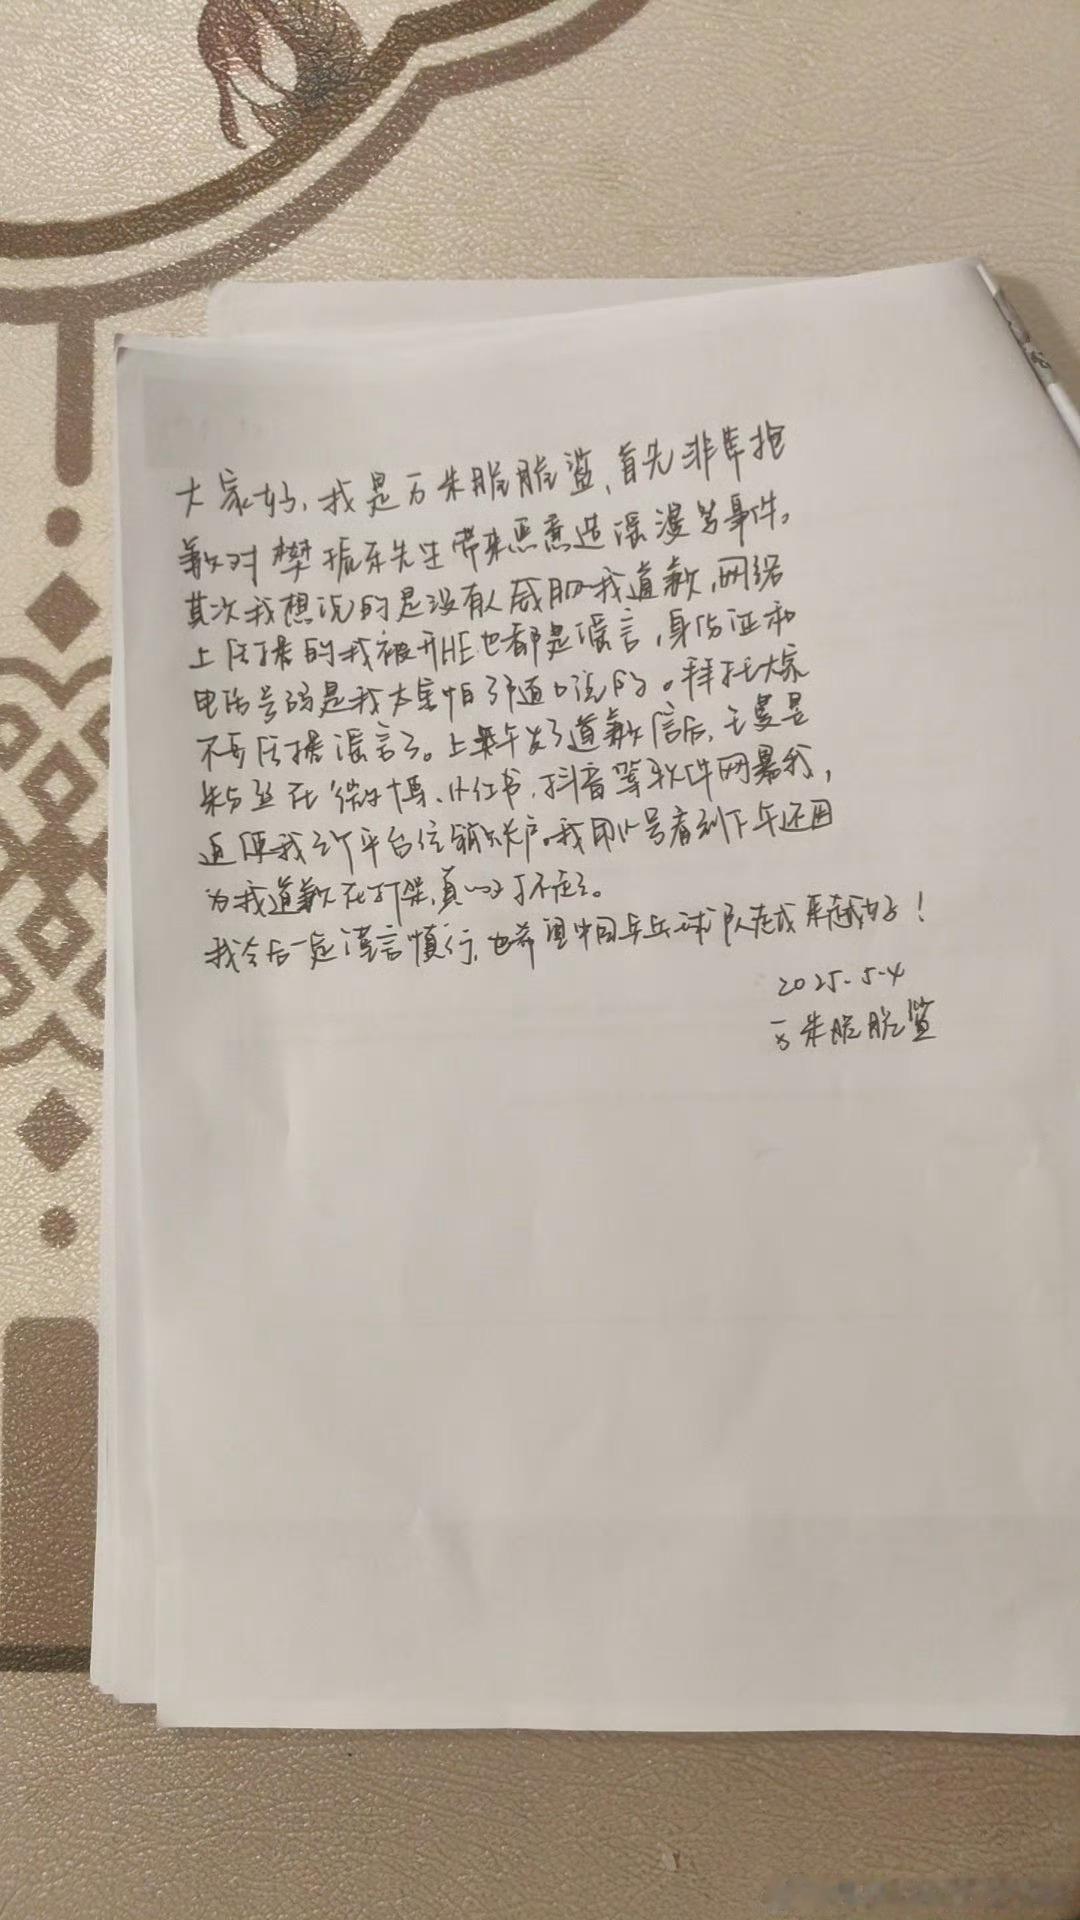 大家好，我是万朱脆脆鲨，首先非常抱
歉对樊振东先生带来恶意造谣漫骂事件。
其次我想说的是没有人威胁我道歉，网络
上传播的我被开HE也都是谣言，身份证和
电话号码是我太害怕了才
不要传播谣言了。上午发了道歉信后，王曼昱
粉丝在微博、小红书、抖音等软件网暴我，
逼迫我三个平台注销账户。我用小号看到下午还因
为我道歉在打架，真的对不起。
我今后一定谨言慎行，也希望中国乒乓球队越来越好！
2025.5.4
万朱脆脆鲨